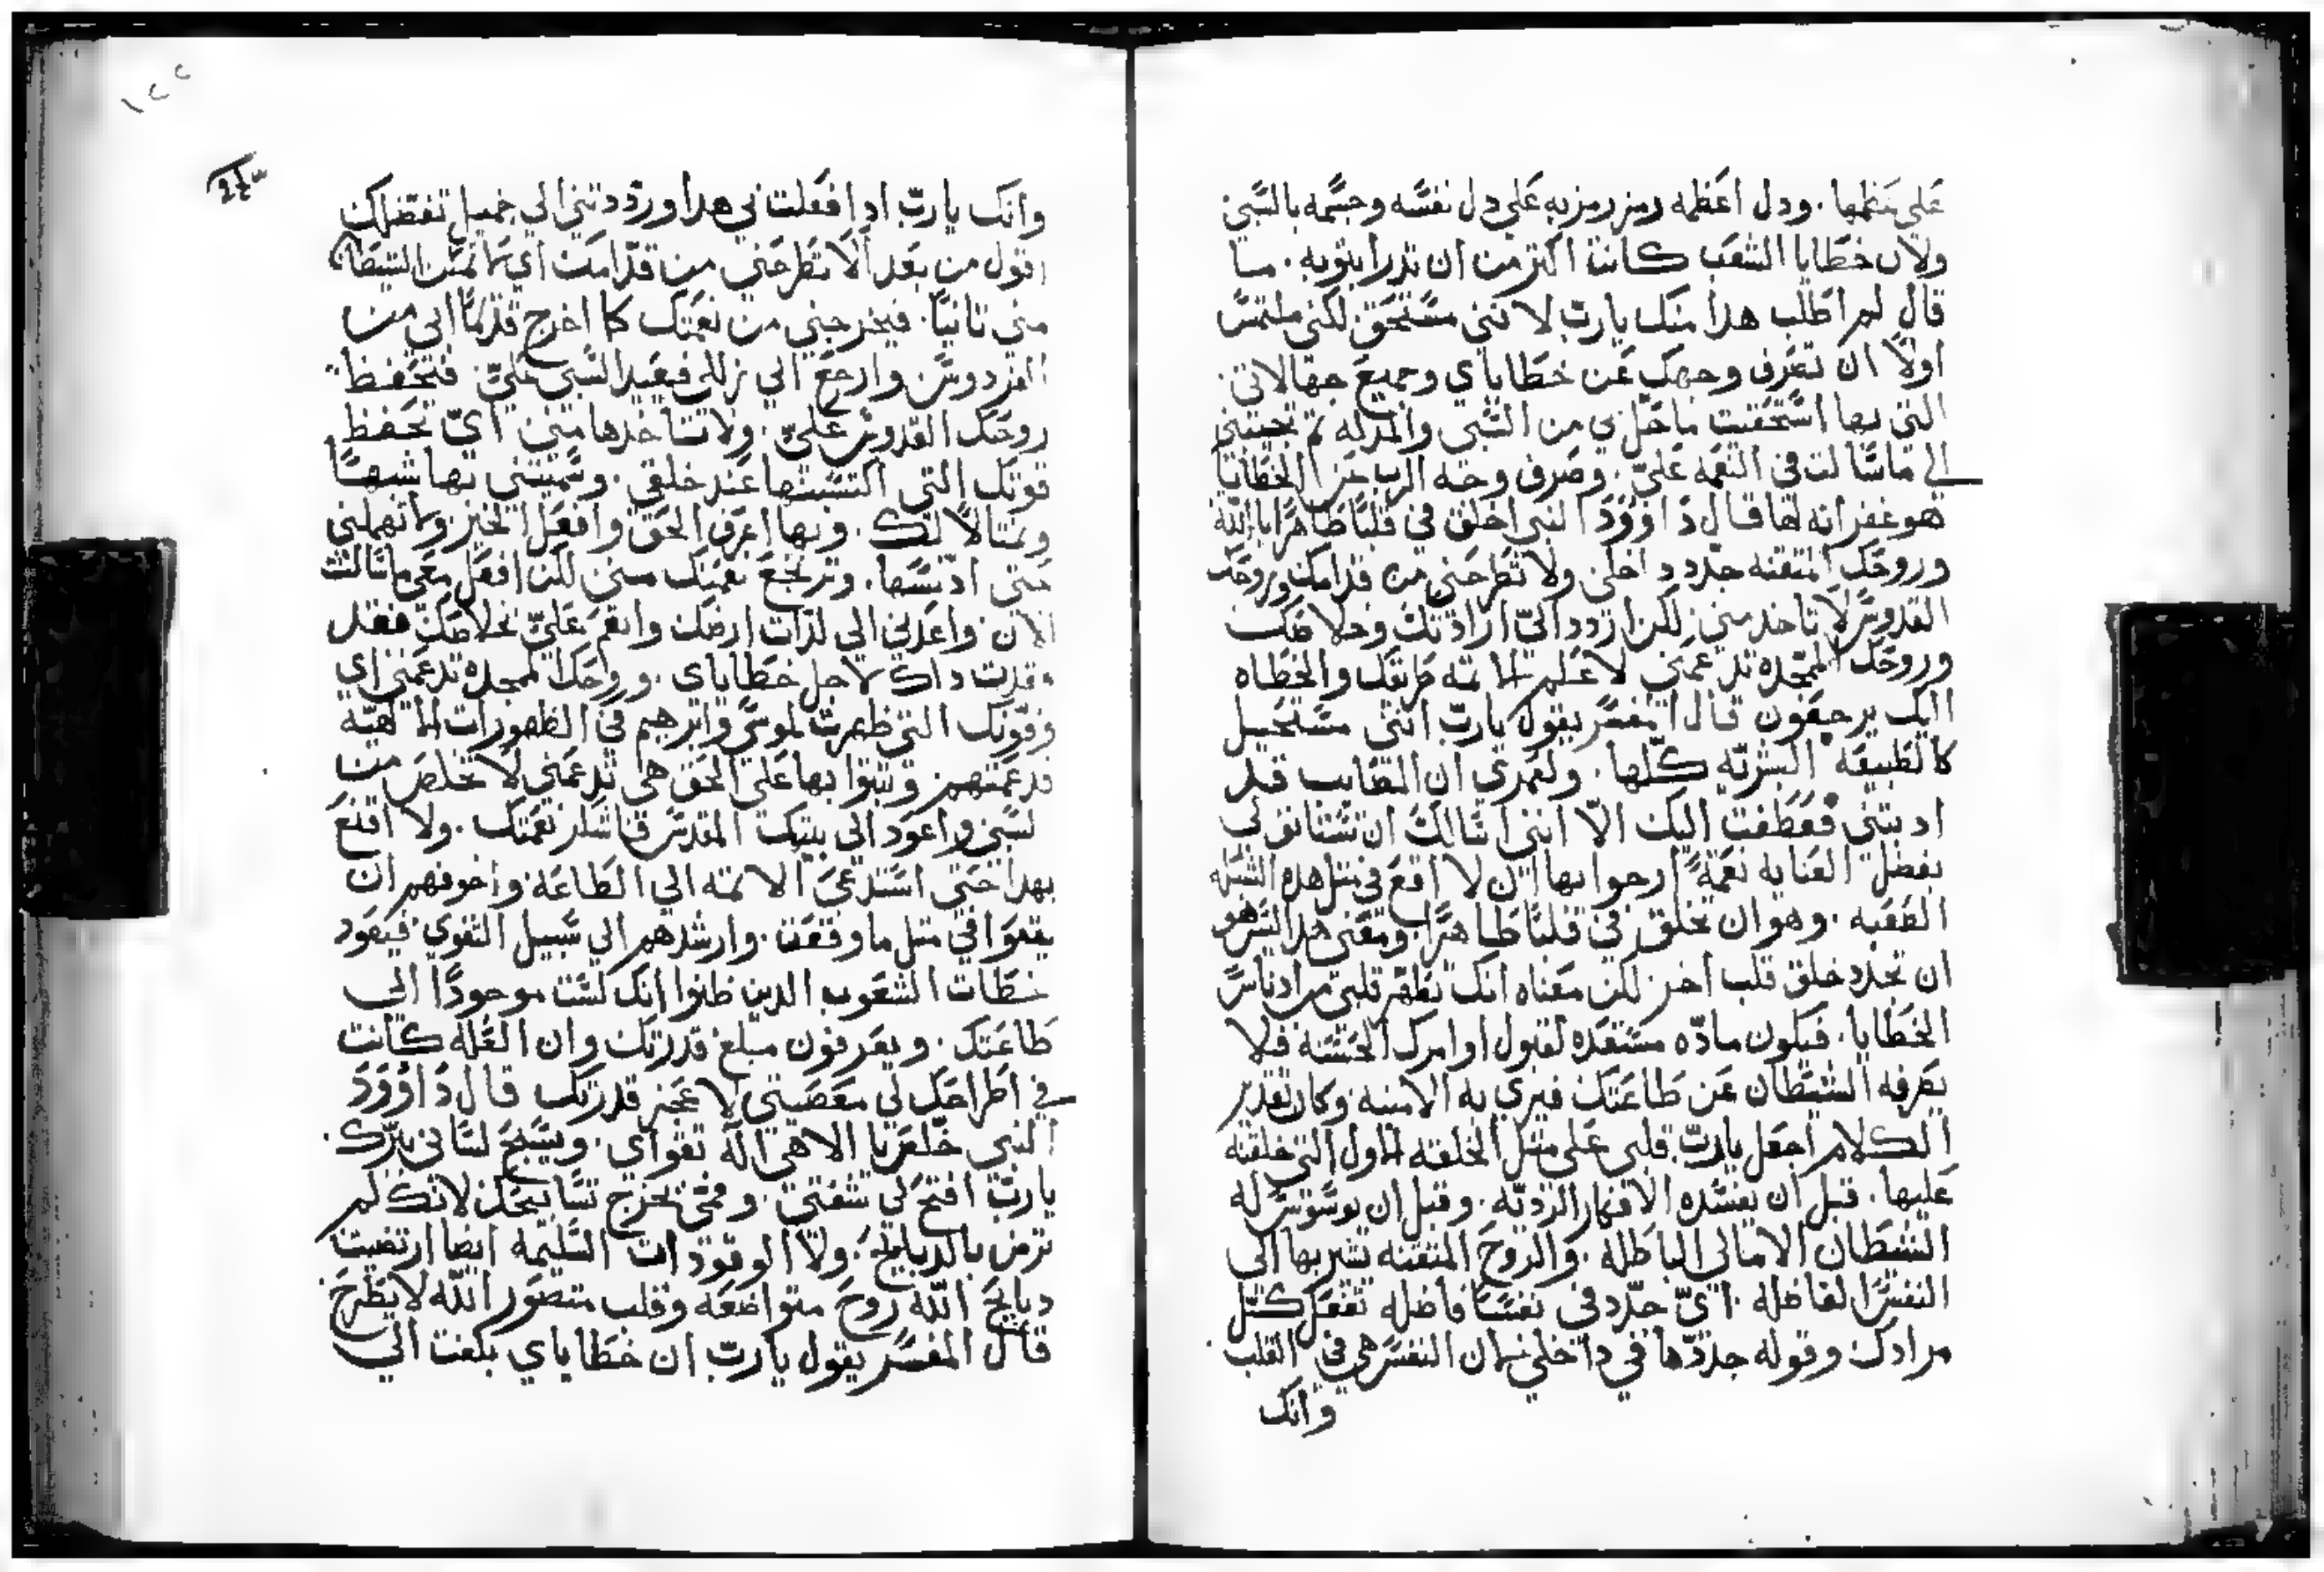 على عظمها . ودل اعظمه رمز رمز به على دل نفسه وجسمه بالسبي
ولان خطايا الشعب كانت اكتر من ان تدرا بتوبه . ما
قال لم اطلب هدا منك يارب لانني مستحق لكني ملتمس
اولا ان تصرف وجهك عن خطاياي وجميع جهالاتي .
التي بها استحقيت ما حل بي من السبي والمدله تم تجيبني
الي ما سالت في النعمه علي . وصرف وجه الرب عن الخطايا
هو غفرانه لها قال داوود النبي اخلق في قلبا طاهرا يا الله
وروحك المتقنه جدد داخلي ولا تطرحني من قدامك وروحك
القدوس لا تاخد مني لكن اردد الي ارادتك وخلاصك
وروحك الممجده تدعمني لاعلم الاتمه طريقك والخطاه
اليك يرجعون قال المفسر يقول يارب انني مستحيل
كالطبيعه البشريه كلها . ولعمري ان المصايب قد
ادبتني فعطفت اليك الا انني اسالك ان تستانف لي
بفضل العنايه نعمة ارجوا بها ان لا اقع في متل هده الشده
الصعبه . وهو ان تخلق في قلبا طاهرا . ومعني هدا ليس هو
ان تجدد خلق قلب اخر لكن معناه انك تطهر قلبي من ادناس
الخطايا . فيكون ماده مستعده لقبول اوامرك الحسنه فلا
يصرفه الشيطان عن طاعتك فيري به الامنيه وكان تقدير
الكلام اجعل يارب قلبي على متل الخلقه الاول التي خلقته
عليها . قبل ان يفسده الافكار الرديه . وقبل ان يوسوس له
الشيطان الامالي الباطله . والروح المتقنه تشير بها الي
النفس الفاضله . اي جدد في نفسا فاضله تفعل كتل
مرادك وقوله جددها في داخلي لان النفس هي في القلب
وانك
١٢٢
وانك يارب ادا فعلت بي هدا ورددتني الي جميل تفضلك
اقول من بعد الا تطرحني من قدامك اي لا تمكن الشيطان
مني تانيا . فيخرجني من نعمتك كما اخرج قديما ابي من
الفردوس وارجع الي زللي فيعيد السبي علي . فتحفظ
روحك القدوس علي . ولا تاخدها مني اي تحفظ
قوتك التي اكتسبتها عند خلقي . وسميتني بها شبها
ومتالا لك . وبها اعرف الحق وافعل الخير ولا تهملني
حتي ادنسها . وترتجع نعمتك مني لكن افعل معي ما سالت
الان واعدني الي لدات ارضك وانعم علي بخلاصك فقد
فقدت داك لاجل خطاياي . وروحك الممجده تدعمني اي
وقوتك التي ظهرت لموسي وابرهيم في الظهورات الالاهيه
فدعمتهم وتبتوا بها على الحق هي تدعمني لاتخلص من
السبي واعود الي بيتك المقدس فاشكر نعمتك . ولا اقنع
بهدا حتي استدعي الاتمه الي الطاعة واخوفهم ان
يقعوا في متل ما وقعت . وارشدهم الي سبيل التقوي فيعود
خطات الشعوب الدين ظنوا انك لست موجودا الي
طاعتك . ويعرفون مبلغ قدرتك وان العله كانت
في اطراحك لي معصيتي لا عجز قدرتك قال داوود
النبي خلصني يا الاهي اله تقواي . ويسبح لساني ببرك .
يارب افتح لي شفتي . وفمي يخرج تسابيحك لانك لم
ترض بالدبايح . ولا الوقودات السليمه ايضا ارتضيت
دبايح الله روح متواضعه وقلب متصور الله لا يطرح
قال المفسر يقول يارب ان خطاياي بلغت الي